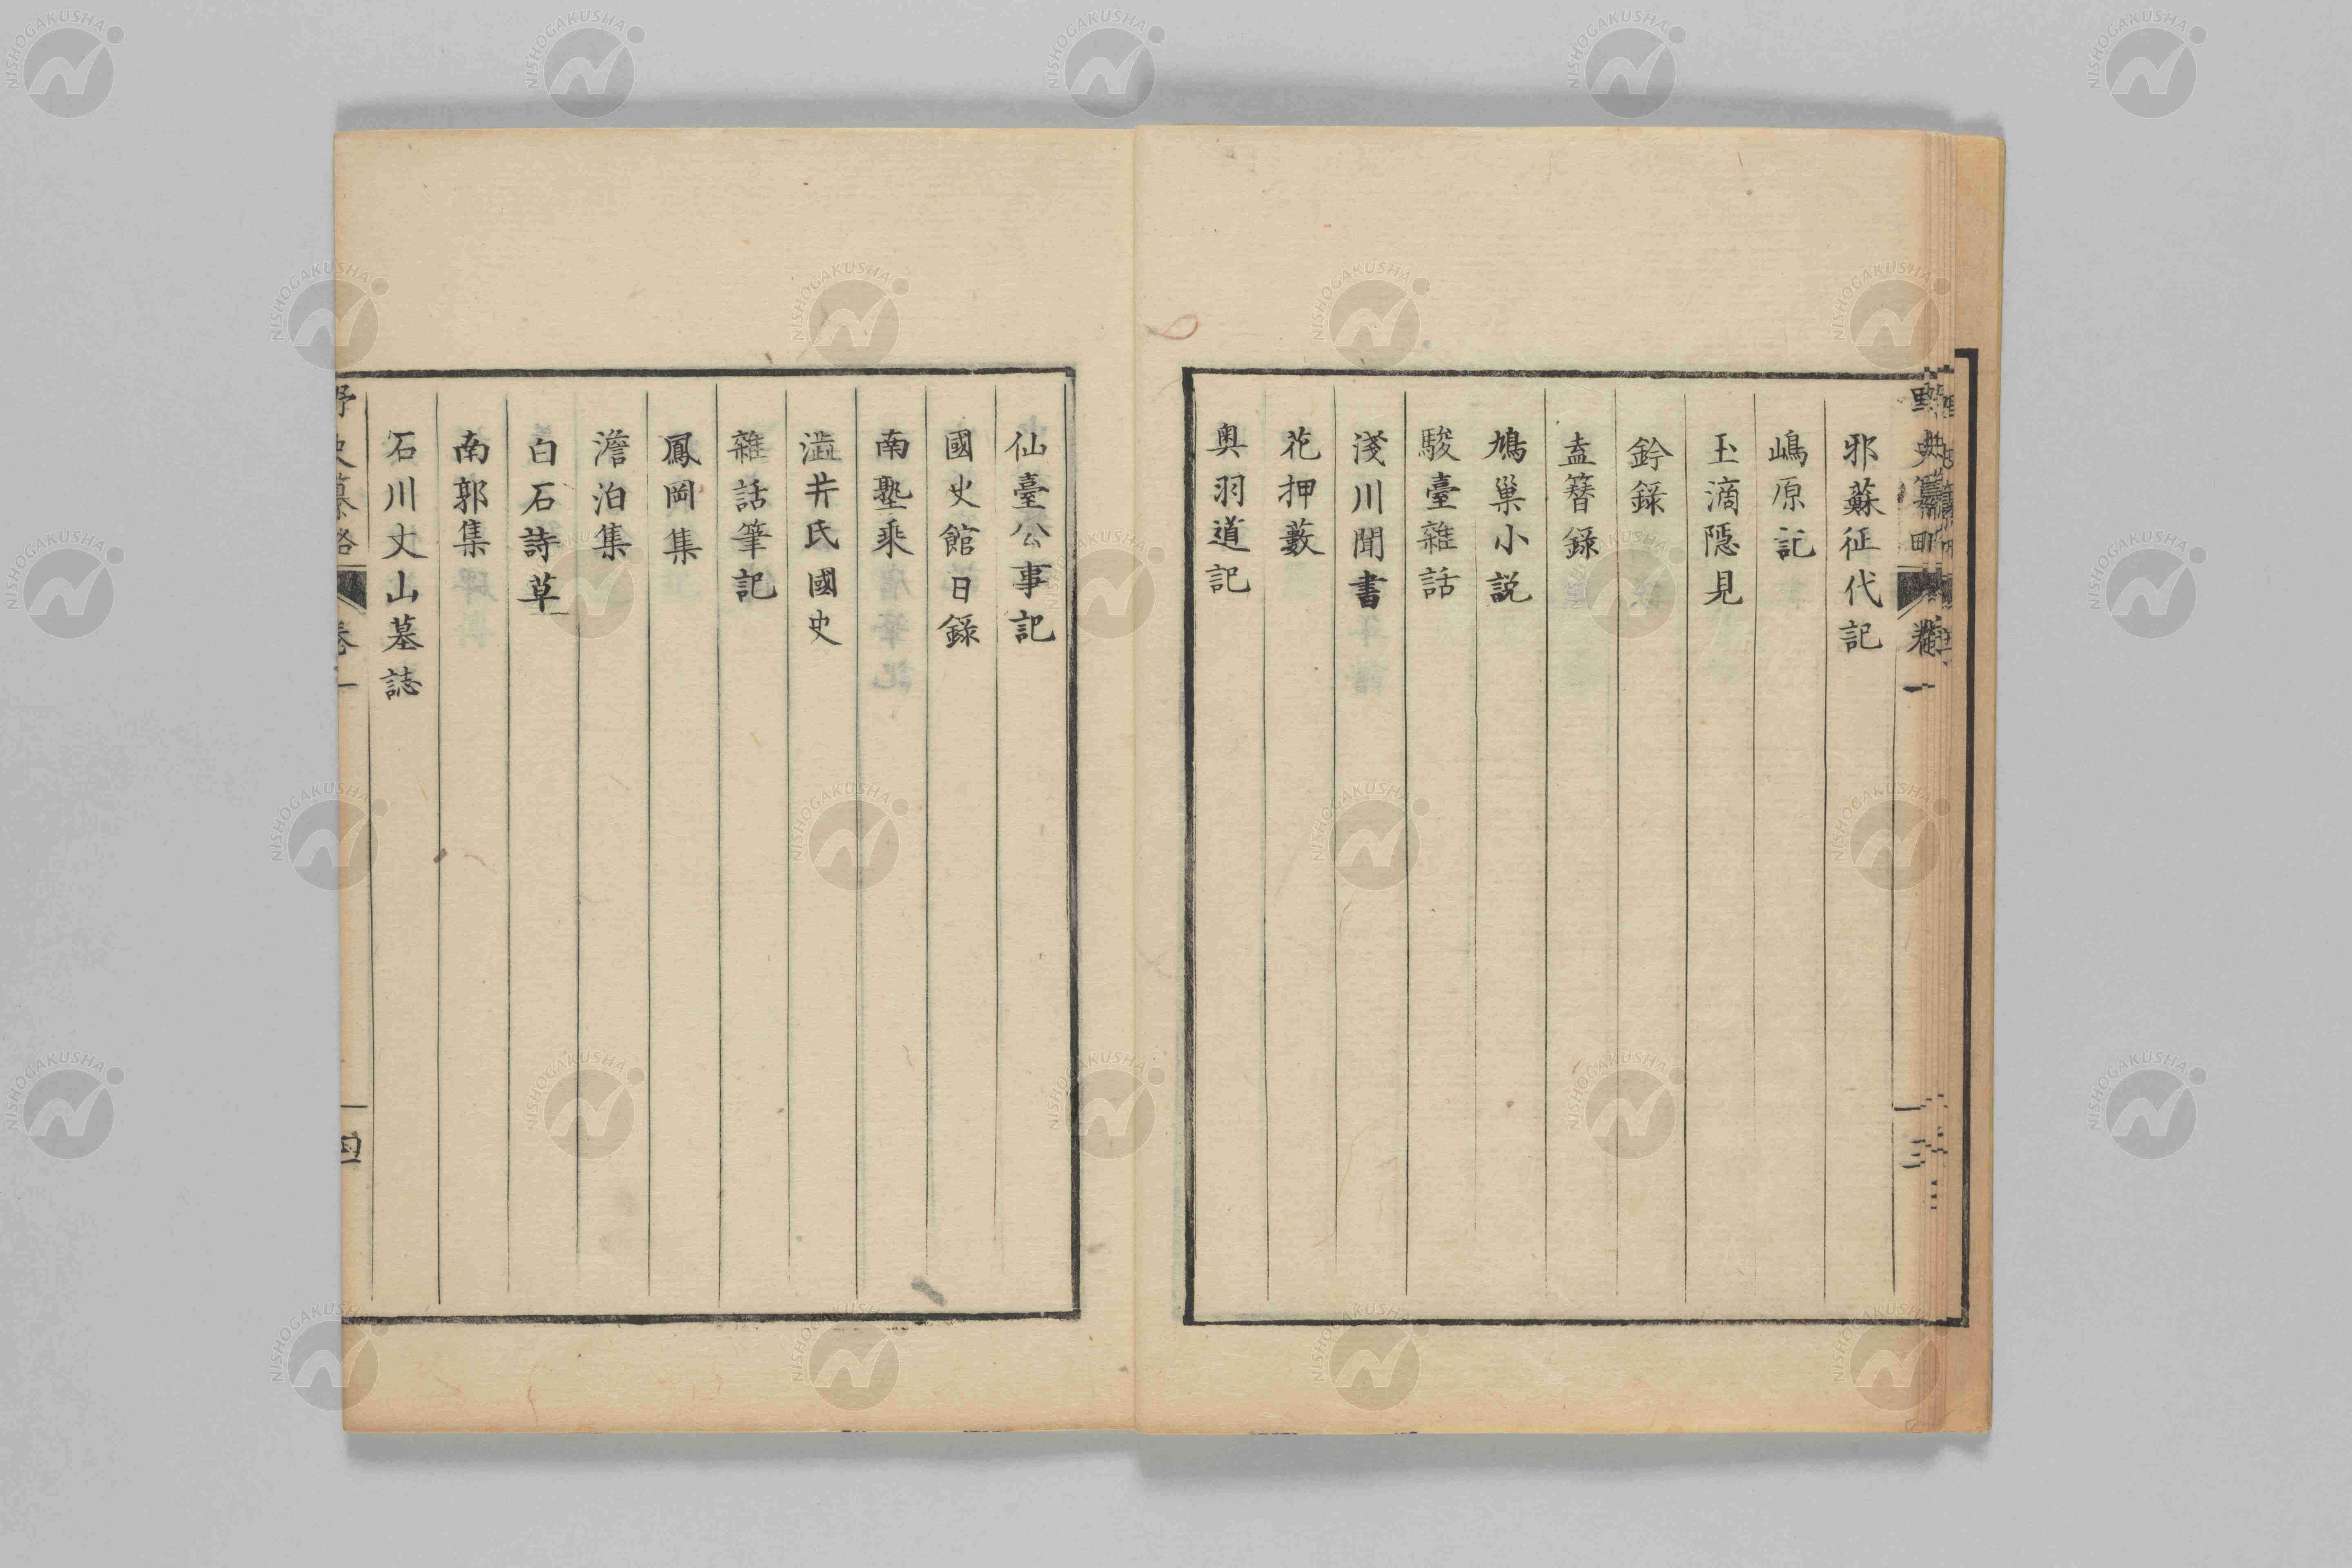 邪蘇征代記
嶋原記
玉滴隠見
鈐録
盍簪録
鳩巣小説
駿臺雜話
淺川聞書
花押藪
奥羽道記
仙臺公事記
國史館日録
南塾乘
澁井氏國史
雜話筆記
鳳岡集
澹泊集
白石詩草
南郭集
石川丈山墓誌
四
NISHOGAKUSHA